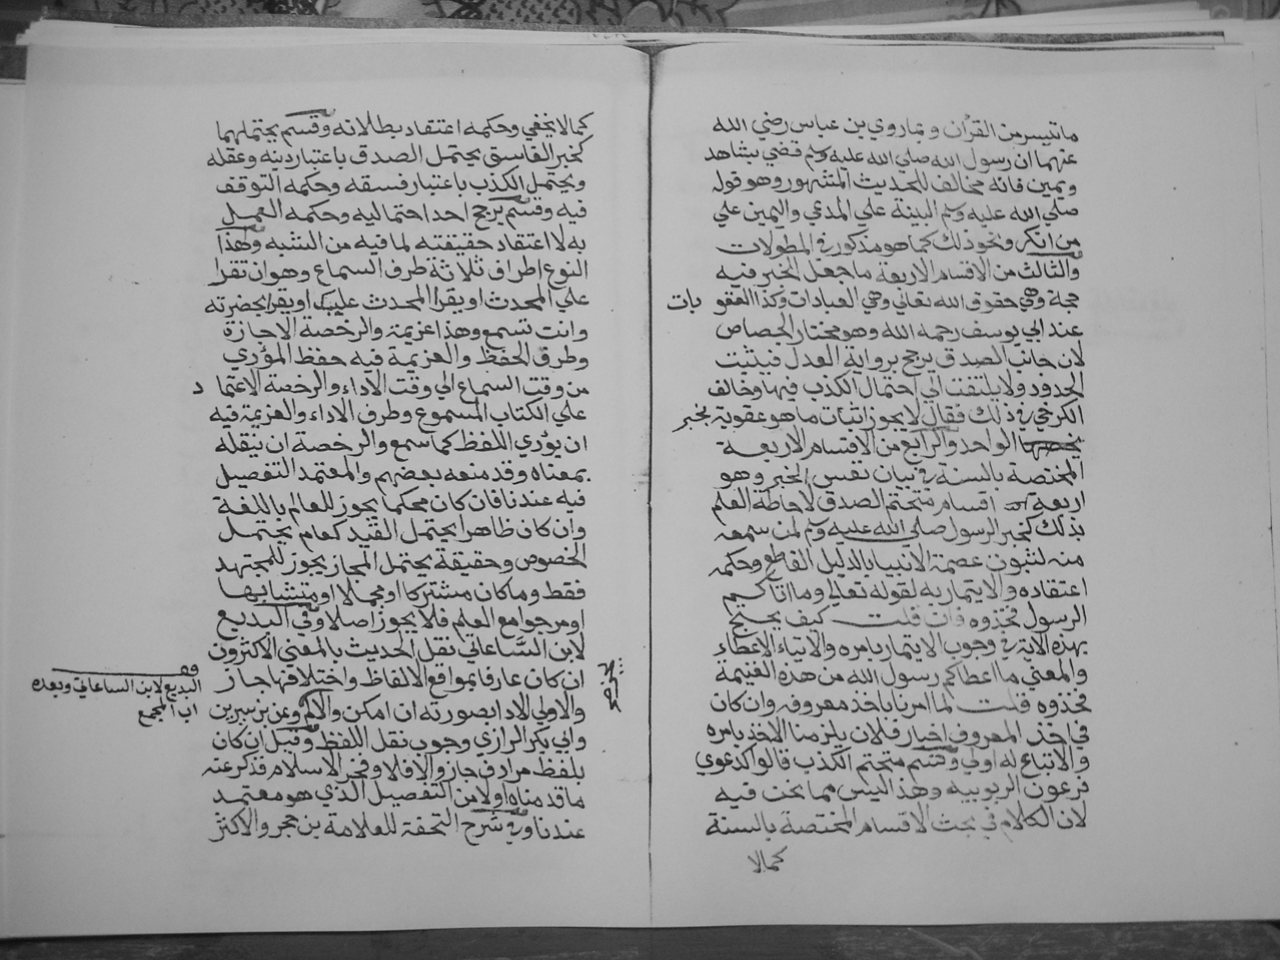 ما تيسر من القرآن وبما روي بن عباس رضي الله
عنهما ان رسول الله صلي الله عليه وسلم قضي بشاهد
ويمين فانه مخالف للحديث المشهور وهو قوله
صلي الله عليه وسلم البينة علي المدعي واليمين علي
من انكر ونحو ذلك كما هو مذكور في المطولات
والثالث من الاقسام الاربعة ما جعل الخبر فيه
حجة وهي حقوق الله تعالي وهي العبادات وكذا العقوبات
عند ابي يوسف رحمه الله وهو مختار الجصاص
لان جانب الصدق يرجح برواية العدل فيثبت
الحدود ولا يلتفت الي احتمال الكذب فيها وخالف
الكرخي في ذلك فقال لا يجوز اثبات ما هو عقوبة بخبر
الواحد والرابع من الاقسام الاربعة
المختصة بالسنة في بيان نفس الخبر وهو
اربعة اقسام متحتم الصدق لاحاطة العلم
بذلك كخبر الرسول صلي الله عليه وسلم لمن سمعه
منه لثبوت عصمة الانبيا بالدليل القاطع وحكمه
اعتقاده والايتمار به لقوله تعالي وما اتاكم
الرسول فخذوه فان قلت كيف يحتج
بهذه الاية في وجوب الايتمار بامره والايتاء الاعطاء
والمعني ما اعطاكم رسول الله من هذه الغنيمة
فخذوه قلت لما امرنا باخذ معروفه وان كان
في اخذ المعروف اخبار فلان يلزمنا الاخذ بامره
والاتباع له اولي وقسم متحتم الكذب قالوا كدعوي
فرعون الربوبية وهذا ليس مما نحن فيه
لان الكلام في بحث الاقسام المختصة بالسنة
كما لا
كما لا يخفي وحكمه اعتقاد بطلانه وقسم يحتملهما
كخبر الفاسق يحتمل الصدق باعتبار دينه وعقله
ويحتمل الكذب باعتبار فسقه وحكمه التوقف
فيه وقسم يرجح احد احتماليه وحكمه العمل
به لا اعتقاد حقيقته لما فيه من الشبه ولهذا
النوع اطراف ثلاثة طرف السماع وهو ان تقرا
علي المحدث او يقرا المحدث عليك او يقرا بحضرته
وانت تسمع وهذا عزيمة والرخصة الاجازة
وطرق الحفظ والعزيمة فيه حفظ المؤدي
من وقت السماع الي وقت الاداء والرخصة الاعتماد
علي الكتاب المسموع وطرف الاداء والعزيمة فيه
ان يؤدي اللفظ كما سمع والرخصة ان ينقله
بمعناه وقد منعه بعضهم والمعتمد التفصيل
فيه عندنا فان كان محكما يجوز للعالم باللغة
وان كان ظاهرا يحتمل القيد كعام يحتمل
الخصوص وحقيقة يحتمل المجاز يجوز للمجتهد
فقط وما كان مشتركا او مجملا او متشابها
او من جوامع العلم فلا يجوز اصلا وفي البديع
لابن الساعاتي نقل الحديث بالمعني الاكثرون
ان كان عارفا بمواقع الالفاظ واختلافها جاز
والاولي الادا بصورته ان امكن والا وعن بن سيرين
وابي بكر الرازي وجوب نقل اللفظ وقيل ان كان
بلفظ مرادف جاز والا فلا وفخر الاسلام قد ذكر عنه
ما قدمناه اولا من التفصيل الذي هو معتمد
عندنا وفي شرح التحفة للعلامة بن حجر والاكثر
قف
البديع لابن الساعاتي وبعده
المجمع